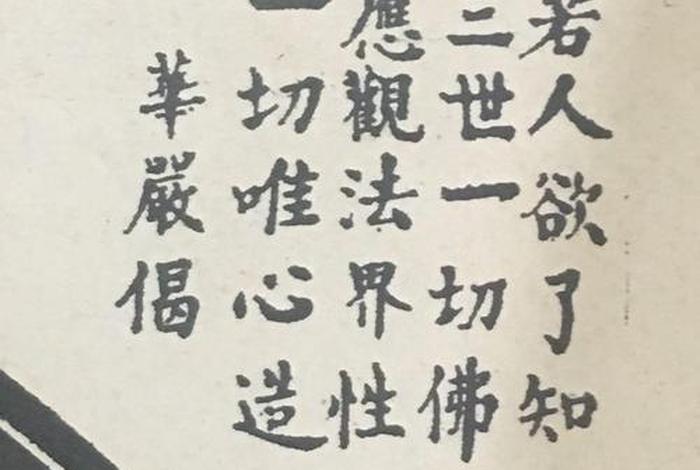 若人欲了知
三世一切佛
應觀法界性
一切唯心造
華嚴偈